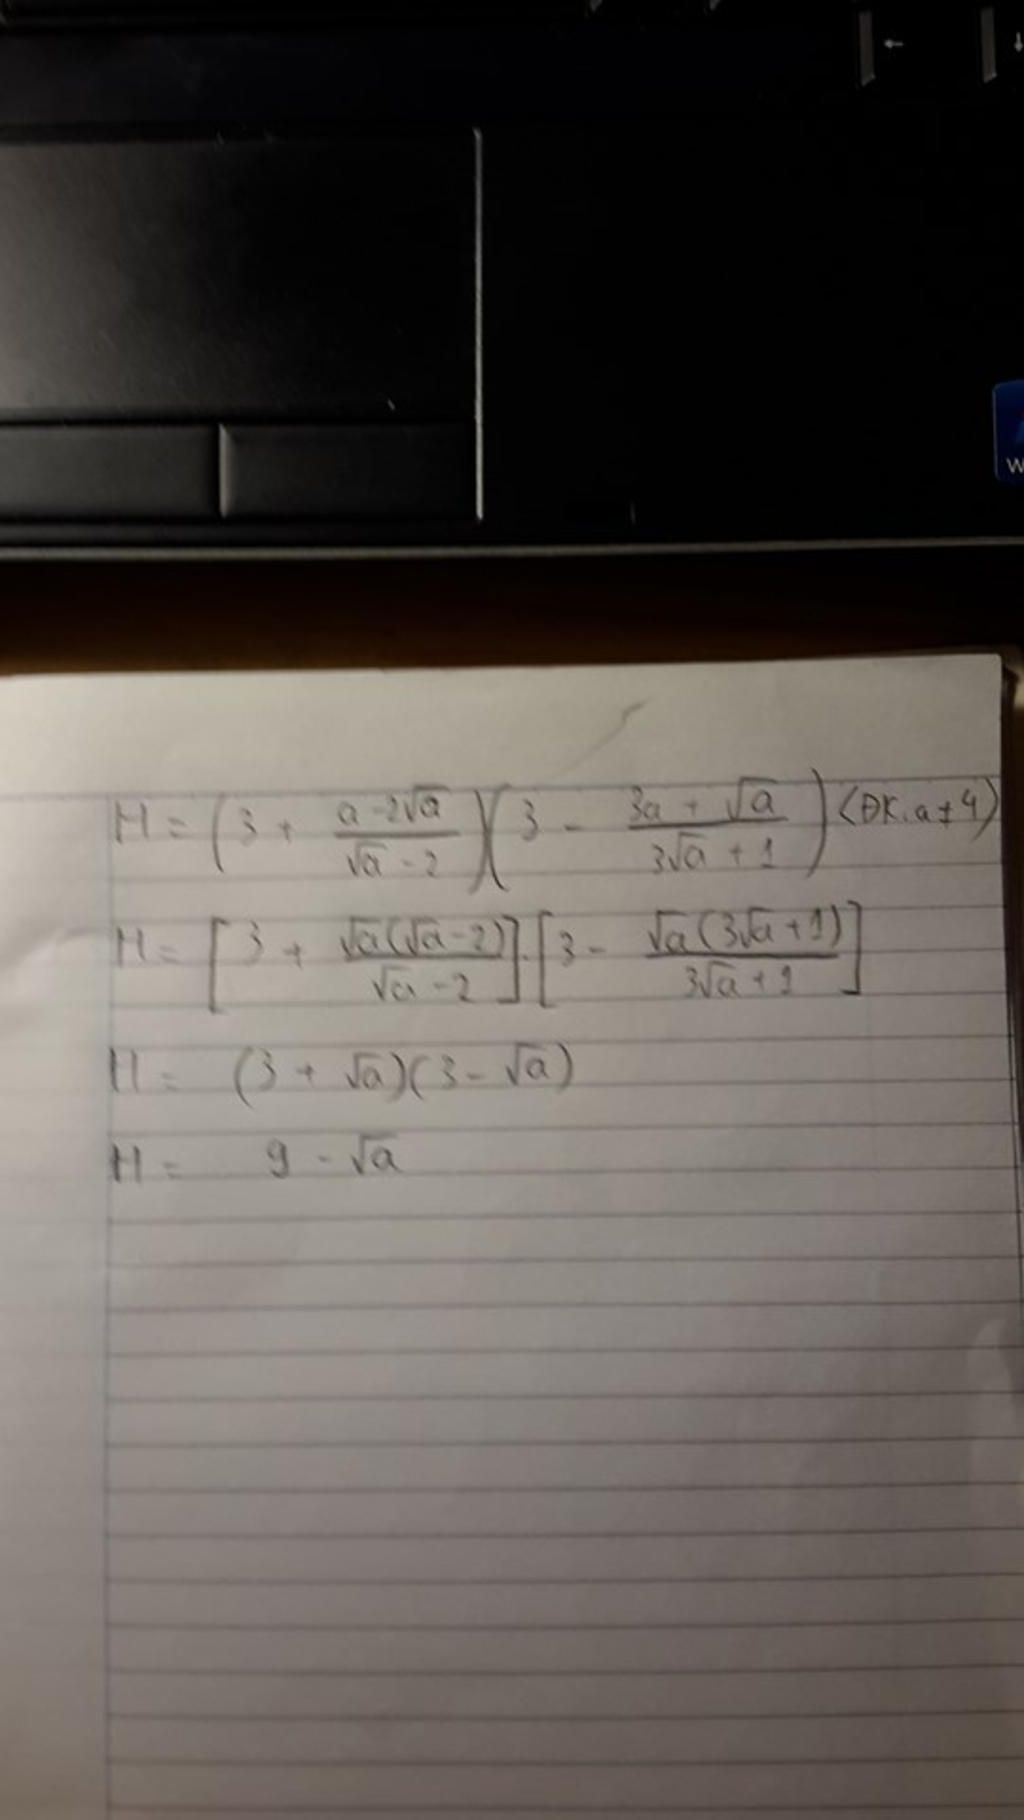 H = (3 + \frac{a - 2\sqrt{a}}{\sqrt{a} - 2})(3 - \frac{3a + \sqrt{a}}{3\sqrt{a} + 1}) (ĐK. a ≠ 4)
H = [3 + \frac{\sqrt{a}(\sqrt{a} - 2)}{\sqrt{a} - 2}].[3 - \frac{\sqrt{a}(3\sqrt{a} + 1)}{3\sqrt{a} + 1}]
H = (3 + \sqrt{a})(3 - \sqrt{a})
H = 9 - \sqrt{a}